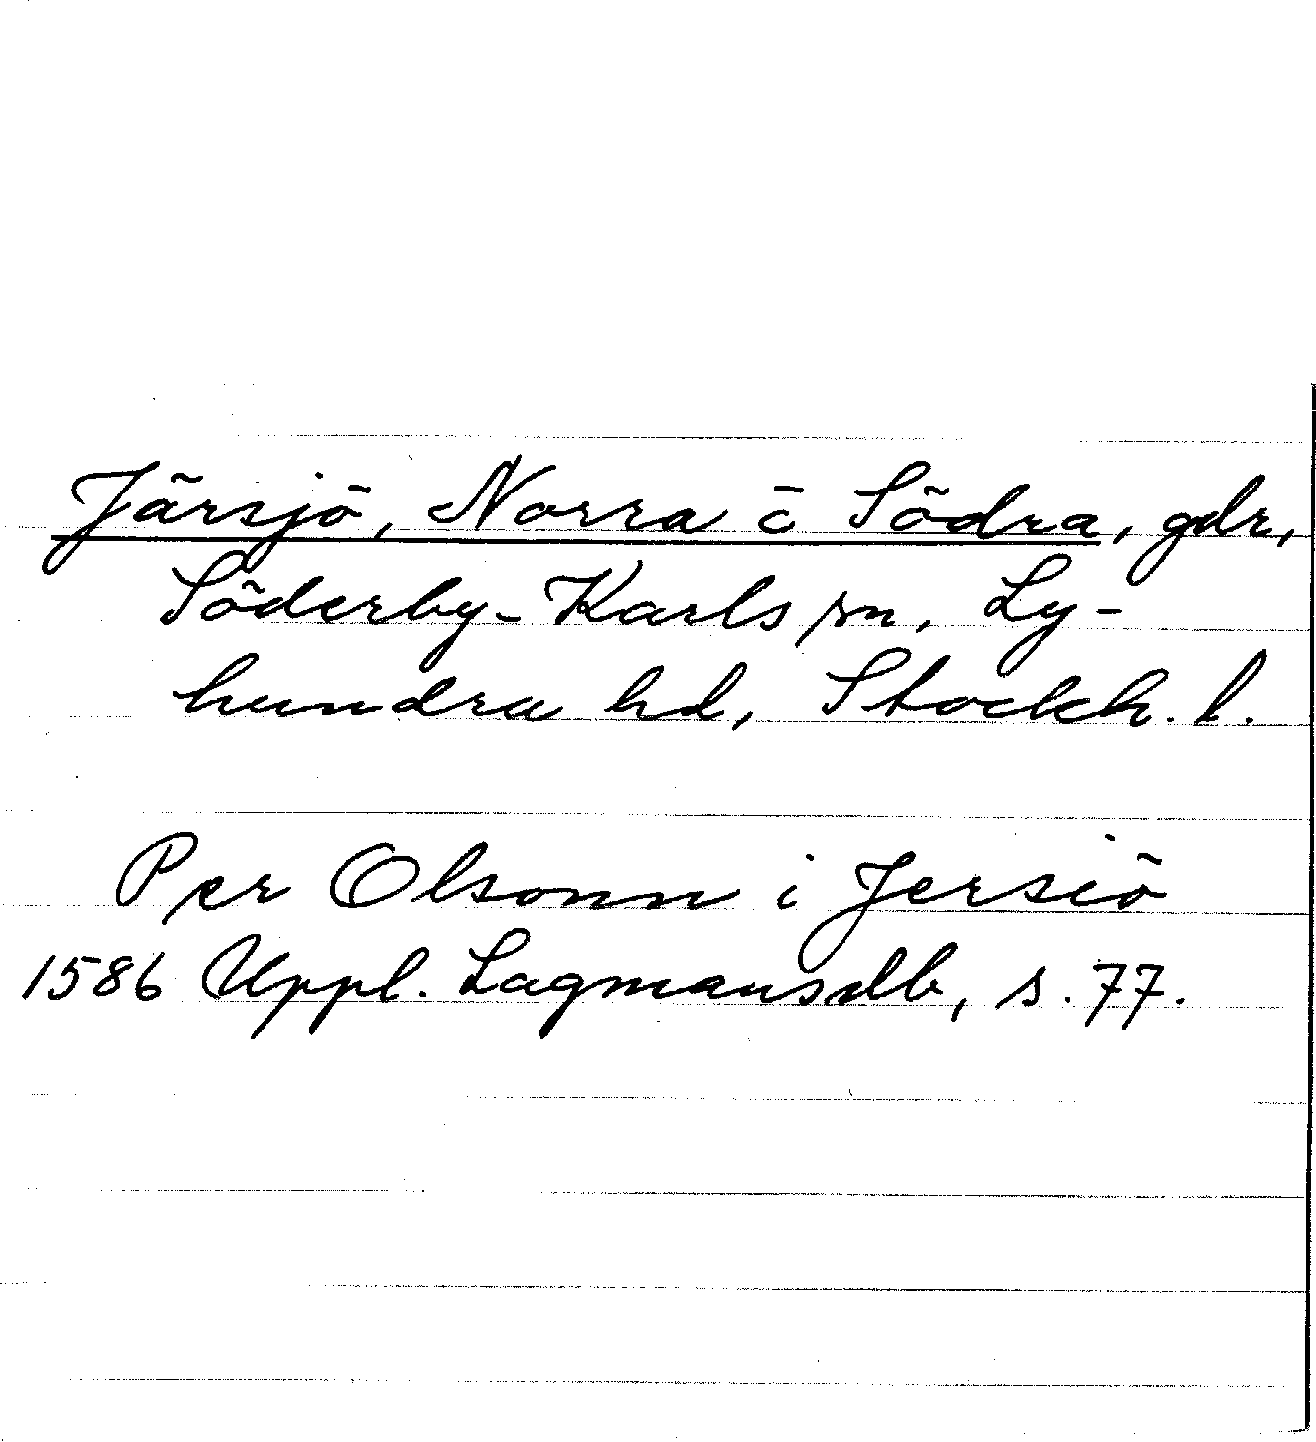 Järsjö, Norra o Södra, gdr,
Söderby-Karls sn, Ly-
hundra hd, Stockh. l.
Per Olsonn i Jersiö
1586 Uppl. Lagmansdb, s. 77.